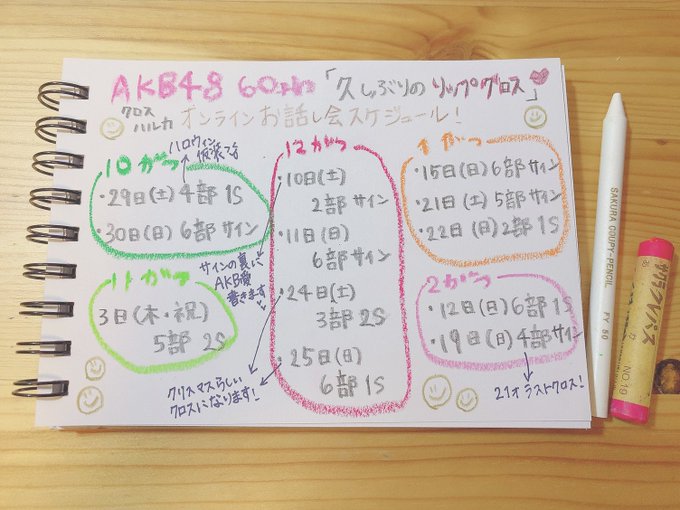 AKB48 60th 「久しぶりのリップグロス」
クロス
ハルカ
オンラインお話し会スケジュール!
10がつ
ハロウィン
仮装つる
・29日(土)4部 1S
・30日(日)6部 サイン
11がつ
3日(木・祝)
5部 2S
12がつ
・10日(土)
2部 サイン
・11日(日)
6部 サイン
サインの裏に
AKB愛
書きます
・24日(土)
3部 2S
・25日(日)
6部 1S
クリスマスらしい
クロスになります!
1がつ
・15日(日)6部サイン
・21日(土)5部サイン
・22日(日)2部 1S
2がつ
・12日(日)6部 1S
・19日(日)4部サイン
21才ラストクロス!
SAKURA COUPY-PENCIL FY 50
サクラクレパス
NO.19